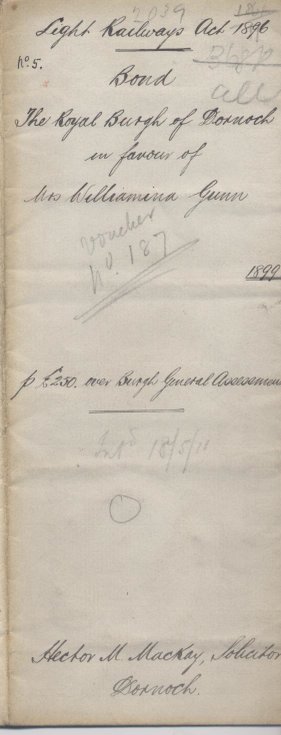 2039
Light Railways Act 1896
No. 5.
all
Bond
The Royal Burgh of Dornoch
in favour of
Mrs Williamina Gunn
Voucher
No. 187
1899
p £250. over Burgh General Assessment
Intd 15/5/11
Hector M. Mackay, Solicitor
Dornoch.